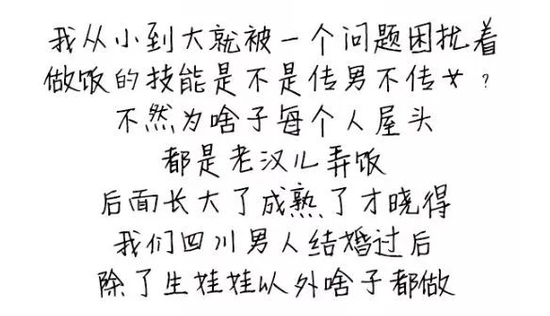 我从小到大就被一个问题困扰着
做饭的技能是不是传男不传女?
不然为啥子每个人屋头
都是老汉儿弄饭
后面长大了成熟了才晓得
我们四川男人结婚过后
除了生娃娃以外啥子都做